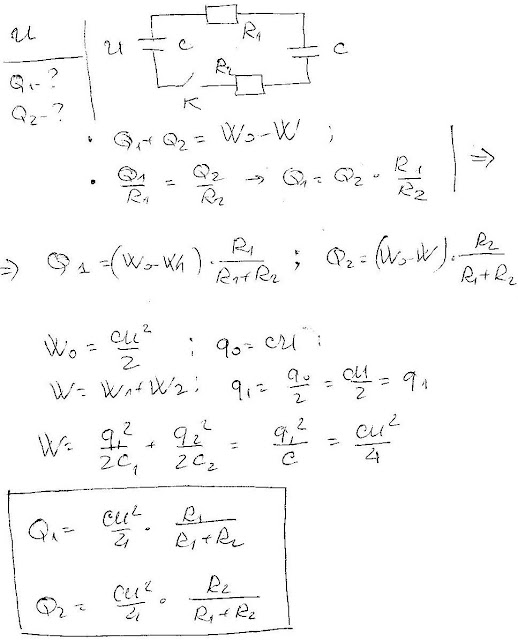 U
Q₁-?
Q₂-?
U C R₁ C R₂ K
• Q₁+Q₂ = W₀-W ;
• Q₁/R₁ = Q₂/R₂ → Q₁ = Q₂ · R₁/R₂ | ⇒
⇒ Q₁ = (W₀-W₁) · R₁/(R₁+R₂) ; Q₂ = (W₀-W) · R₂/(R₁+R₂)
W₀ = CU²/2 ; q₀ = CU ;
W = W₁+W₂ ; q₁ = q₀/2 = CU/2 = q₁
W = q₁²/2C₁ + q₂²/2C₂ = q₁²/C = CU²/4
Q₁ = CU²/4 · R₁/(R₁+R₂)
Q₂ = CU²/4 · R₂/(R₁+R₂)